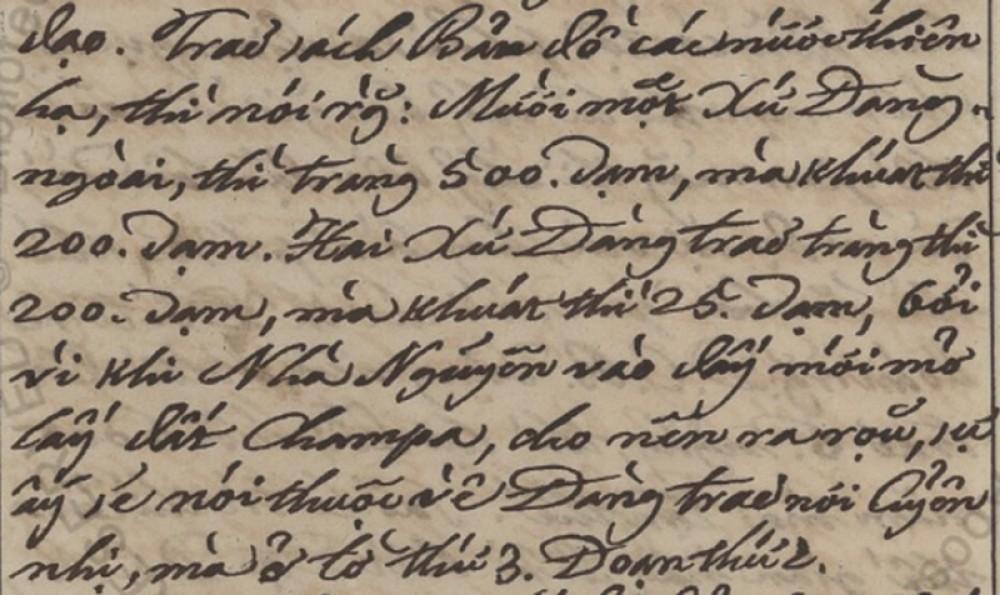 đạo. Traõ sách Bản đồ các nước thiên
hạ, thì nói rằ᷃: Mười một Xứ Đàng
ngoài, thì tràng 500. dạm, mà khoát thì
200. dạm. Hai Xứ Đàng traõ tràng thì
200. dạm, mà khoát thì 25. dạm, bởi
vì khi Nhà Nguyễn vào đấy mới mở
lấy đất Champa, cho nên ra rọũ, sự
ấy sẽ nói thuộc về Đàng traõ nơi Quyển
nhị, mà ở tờ thứ 3. Đoạn thứ 2.